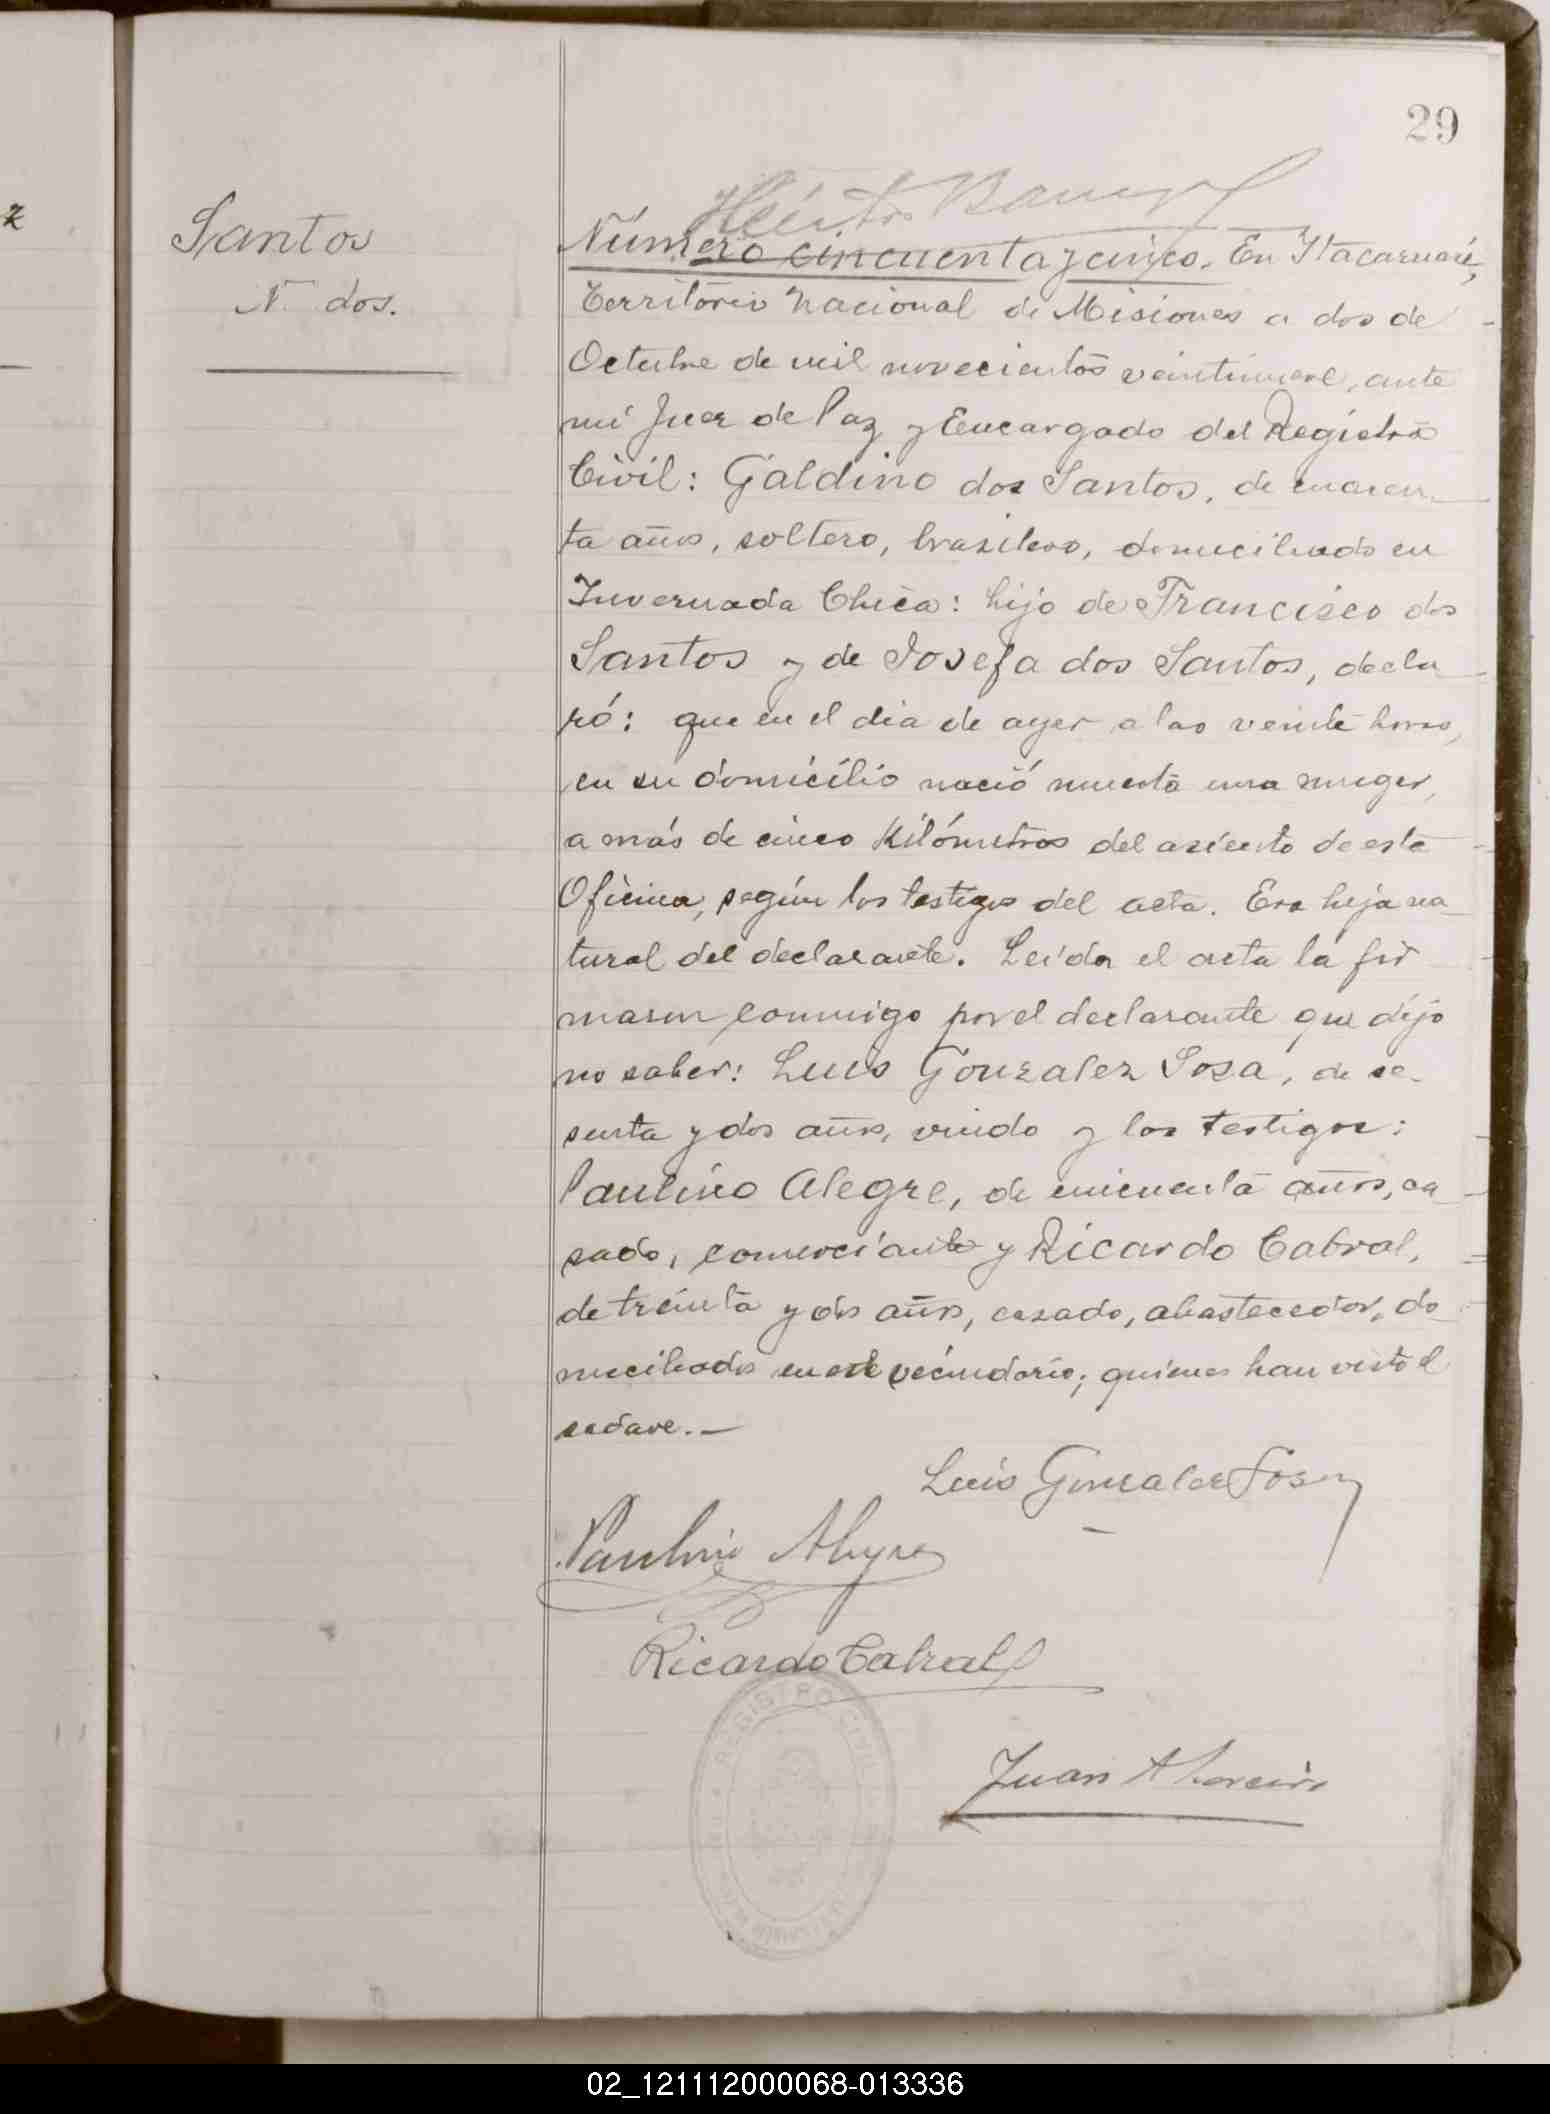 29
Santos
N. dos.
Número cincuenta y cinco. En Itacaruaré,
Territorio Nacional de Misiones a dos de
Octubre de mil novecientos veintinueve, ante
mí Juez de Paz y Encargado del Registro
Civil: Galdino dos Santos, de cuaren-
ta años, soltero, brasilero, domiciliado en
Invernada Chica: hijo de Francisco dos
Santos y de Josefa dos Santos, decla-
ró: que en el dia de ayer a las veinte horas,
en su domicilio nació muerta una muger,
a más de cinco Kilómetros del asiento de esta
Oficina, según los testigos del acta. Era hija na-
tural del declarante. Leida el acta la fir
maron conmigo por el declarante que dijo
no saber: Luis Gonzalez Sosa, de se-
senta y dos años, viudo y los testigos:
Paulino Alegre, de cincuenta años, ca-
sado, comerciante y Ricardo Cabral,
de treinta y dos años, casado, abastecedor, do-
miciliados en este vecindario; quienes han visto el
cadave.—
Luis Gonzalez Sosa
Paulino Alegre
Ricardo Cabral
REGISTRO CIVIL
Juan A
02_121112000068-013336